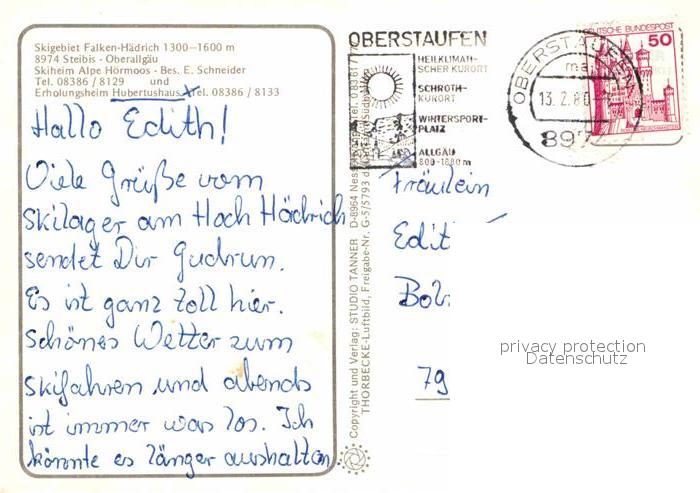 Skigebiet Falken-Hädrich 1300–1600 m
8974 Steibis - Oberallgäu
Skiheim Alpe Hörmoos - Bes. E. Schneider
Tel. 08386 / 8129 und
Erholungsheim Hubertushaus Tel. 08386 / 8133
Hallo Edith!
Viele Grüße vom
Skilager am Hoch Hädrich
sendet Dir Gudrun.
Es ist ganz toll hier.
Schönes Wetter zum
Skifahren und abends
ist immer was los. Ich
könnte es länger aushalten.
Copyright und Verlag: STUDIO TANNER D-8964 Nes
THORBECKE-Luftbild, Freigabe-Nr. G-5/5793 d.
OBERSTAUFEN
HEILKLIMATI-
SCHER KURORT
SCHROTH-
KURORT
WINTERSPORT-
PLATZ
ALLGÄU
800-1880 m
OBERSTAUFEN
ma
13.2.80
897
DEUTSCHE BUNDESPOST
50
Fräulein
Edit
79
privacy protection
Datenschutz